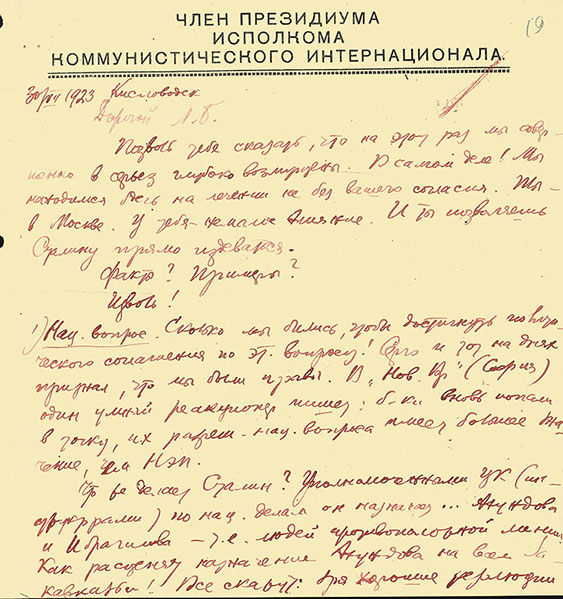 ЧЛЕН ПРЕЗИДИУМА
ИСПОЛКОМА
КОММУНИСТИЧЕСКОГО ИНТЕРНАЦИОНАЛА.
19
30/VII 1923 Кисловодск
Дорогой Л.Б.
Позволь тебе сказать, что на этот раз мы совер-
шенно в серьез глубоко возмущены. В самом деле! Мы
находимся здесь на лечении не без вашего согласия. Ты -
в Москве. У тебя - немалое влияние. И ты позволяешь
Сталину прямо издеваться.
Факты? Примеры?
Изволь!
1) Нац. вопрос. Сколько мы бились, чтобы достигнуть
соглашения по эт. вопросу! Серго и тот на днях
признал, что мы были правы. В „Нов. Вр" (София)
один умный реакционер пишет: б-ки вновь попали
в точку, их разреш. нац. вопроса имеет большее зна-
чение, чем Нэп.
Что же делает Сталин? Уполномоченными ЦК (ин-
структорами) по нац. делам он назначает... Ахундова
и Ибрагимова - т.е. людей противоположной линии
Как расценят назначение Ахундова на всем
Кавказе! Все скажут: для хорошие резолюции